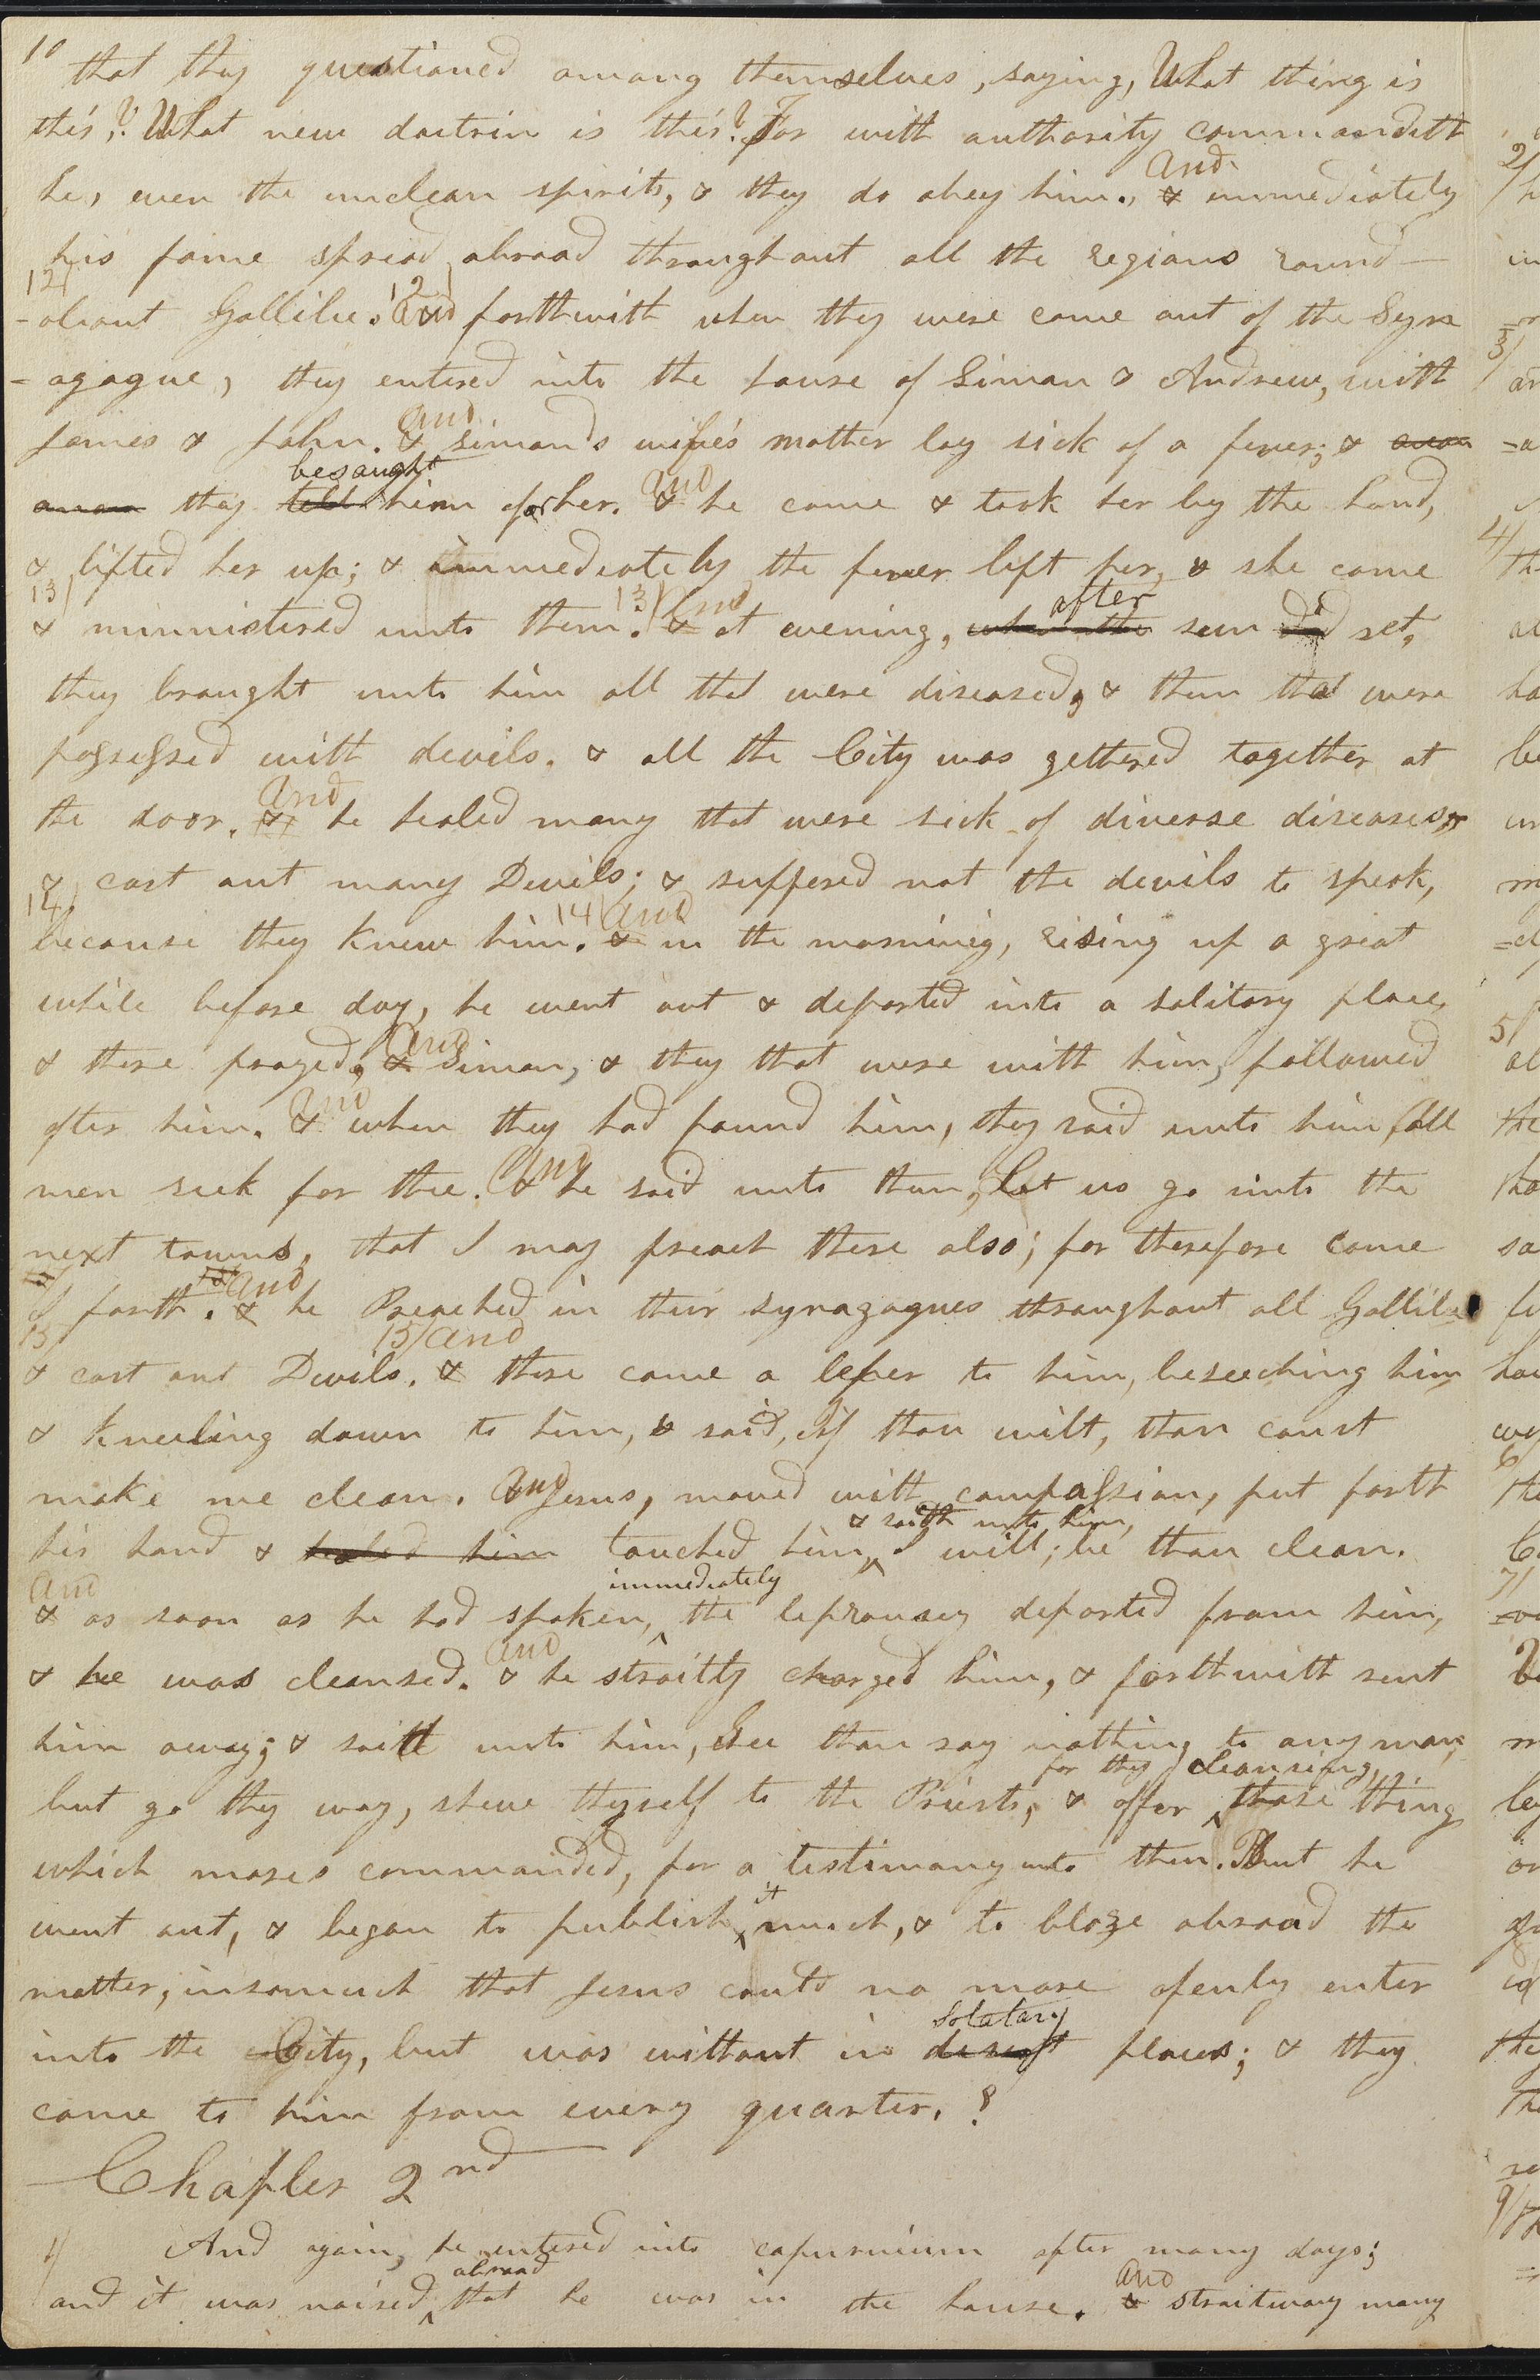 10 that they questioned among themselves, saying, What thing is
this? What new doctrin is this? For with authority commandeth
and
he, even the unclean spirits, & they do obey him., & immediately
his fame spread abroad throughout all the regions round-
12/ 12/ and
-about Gallilee. & forthwith when they were come out of the Syn
-agogue, they entered into the house of Simon & Andrew, with
and
James & John. & Simon's wife's mother lay sick of a fever; & anon
besought and
anon they told him for her. & he came & took her by the hand,
& lifted her up; & immediately the fever left her, & she came
13/ 13/ And after
& ministered unto them. & at evening, when the sun did set,
they braught unto him all that were diseased, & them that were
possessed with devils. & all the City was gethered together at
and
the door. & he healed many that were sick of diverse diseases,
& cast out many Devils; & suffered not the devils to speak,
14/ 14/ and
because they knew him. & in the morning, rising up a great
while before day, he went out & departed into a solitary place,
and
& there prayed, & Simon, & they that were with him, followed
And
after him. & when they had found him, they said unto him all
And
men seek for thee. & he said unto them, Let us go into the
next towns, that I may preach there also; for therefore came
and
I forth. & he Preached in their synagogues throughout all Gallilee
15/ 15/ and
& cast out Devils. & there came a leper to him, beseeching him
& kneeling down to him, & said, if thou wilt, thou canst
make me clean. And Jesus, moved with compassion, put forth
& saith unto him,
his hand & healed him touched him I will; be thou clean.
and immediately
& as soon as he had spoken, the leprousey departed from him,
and
& he was cleansed. & he straitly charged him, & forthwith sent
him away; & saith unto him, See thou say nothing to any man,
for thy cleansing,
but go thy way, shew thyself to the Priests, & offer those thing
which moses commanded, for a testimony unto them. But he
it
went out, & began to publish much, & to blaze abroad the
matter, insomuch that Jesus could no more openly enter
solatary
into the City, but was without in desert places; & they
came to him from every quarter. 8
Chapter 2nd
1/ And again, he entered into capurnium after many days;
abroad and
and it was noised that he was in the house. & straitway many